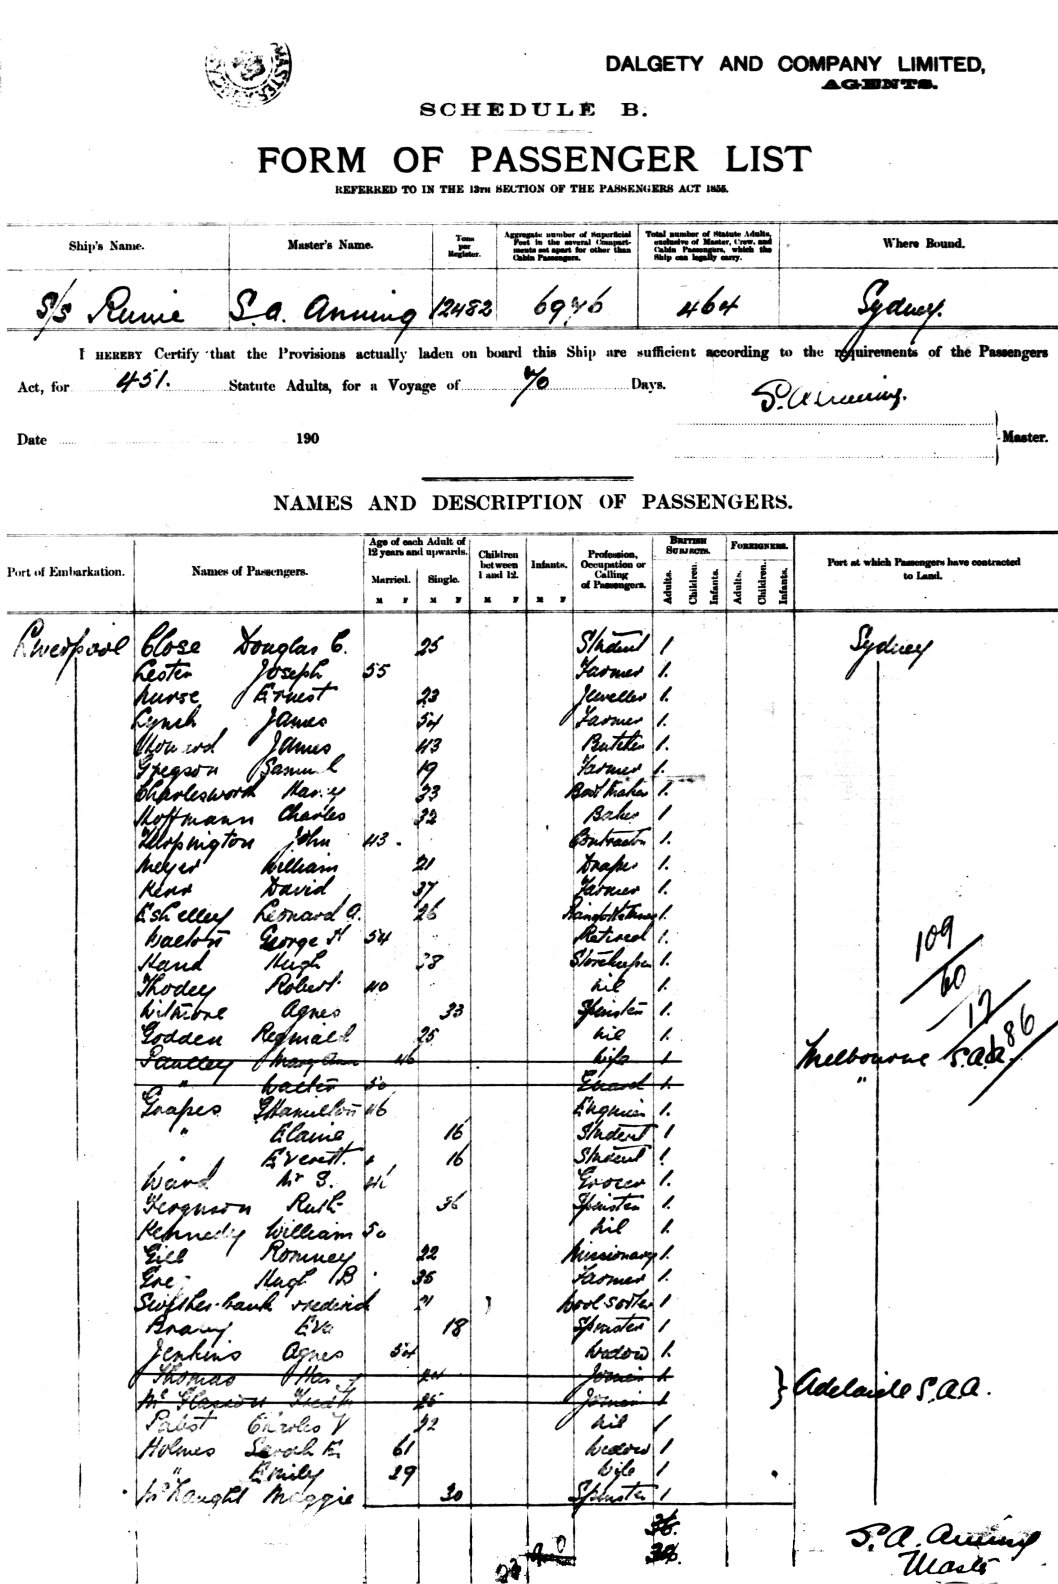 DALGETY AND COMPANY LIMITED,
AGENTS.
SCHEDULE B.
FORM OF PASSENGER LIST
REFERRED TO IN THE 13TH SECTION OF THE PASSENGERS ACT 1855.
Ship's Name. Master's Name. Tons per Register. Aggregate number of Superficial Feet in the several Compartments set apart for other than Cabin Passengers. Total number of Statute Adults, exclusive of Master, Crew, and Cabin Passengers, which the Ship can legally carry. Where Bound.
S/S Runic S.A. Anning 12482 6976 464 Sydney.
I HEREBY Certify that the Provisions actually laden on board this Ship are sufficient according to the requirements of the Passengers
Act, for 451. Statute Adults, for a Voyage of 70 Days.
S.A. Anning.
Date 190 Master.
NAMES AND DESCRIPTION OF PASSENGERS.
Port of Embarkation. Names of Passengers. Age of each Adult of 12 years and upwards. Married. Single. Children between 1 and 12. Infants. Profession, Occupation or Calling of Passengers. BRITISH SUBJECTS. Adults. Children. Infants. FOREIGNERS. Adults. Children. Infants. Port at which Passengers have contracted to Land.
M F M F M F M F
Liverpool Close Douglas C. 25 Student 1 Sydney
Lester Joseph 55 Farmer 1.
Nurse Ernest 23 Jeweller 1.
Lynch James 54 Farmer 1.
Howard James 43 Butcher 1.
Gregson Samuel 19 Farmer 1.
Charlesworth Harry 23 Boot Maker 1.
Hoffmann Charles 32 Baker 1
John 43. Contractor 1.
Meyer William 21 Draper 1.
Kerr David 37 Farmer 1.
Eshelley Leonard A. 26 1.
Walton George H 54 Retired 1.
Hand Hugh 38 Storekeeper 1.
Thodey Robert 40 nil 1.
Agnes 33 Spinster 1.
Godden Reginald 25 nil 1.
Mary Ann 46 Wife 1 Melbourne S.A.A.
" Walter 50 Guard 1. "
Grapes G Hamilton 46 Engineer 1.
" Elaine 16 Student 1
" Everett. 16 Student 1
Ward Mr S. 41 Grocer 1.
Ferguson Ruth 36 Spinster 1.
Kennedy William 50 nil 1.
Gill Romney 22 Missionary 1.
Hugh B 35 Farmer 1.
21 Wool sorter 1
Eva 18 Spinster 1
Jenkins Agnes 54 Widow 1.
Thomas 24 Joiner 1
25 Joiner 1 } Adelaide S.A.A.
Pabst Charles V 22 nil 1
Holmes Sarah E. 61 Widow 1
" Emily 29 Wife 1
McNaught Maggie 30 Spinster 1
109
60
12
86
36.
S.A. Anning
Master